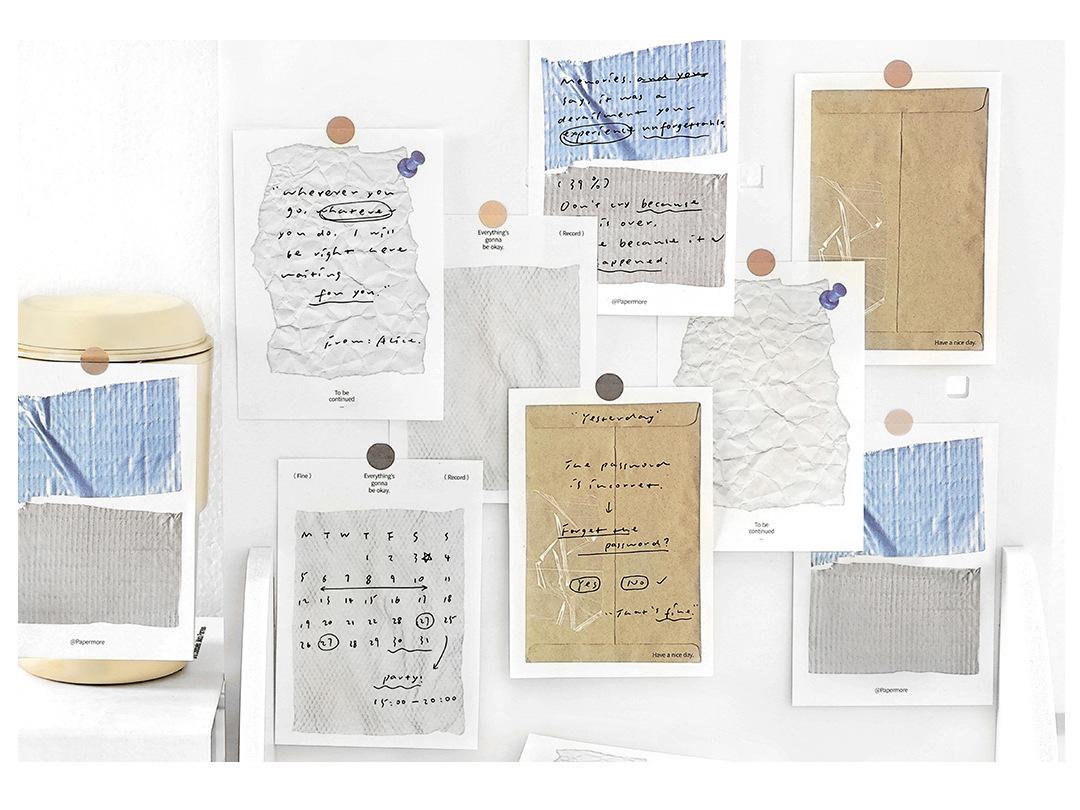 Memories. and you
says it was a
derailment your
experience unforgettable.
(39%)
Don't cry because
is over.
because it
appened.
@Papermore
Have a nice day.
"wherever you
go, whatever
you do, I will
be right here
waiting
for you."
From: Alice.
To be
continued
Everything's
gonna
be okay.
(Record)
To be
continued
@Papermore
(Fine)
Everything's
gonna
be okay.
(Record)
M T W T F S S
1 2 3 4
5 6 7 8 9 10 11
12 13 14 15 16 17 18
19 20 21 22 23 24 25
26 27 28 29 30 31
party!
15:00-20:00
"Yesterday"
The password
is incorret.
↓
Forget the
password?
Yes No ✓
"That's fine."
Have a nice day.
@Papermore